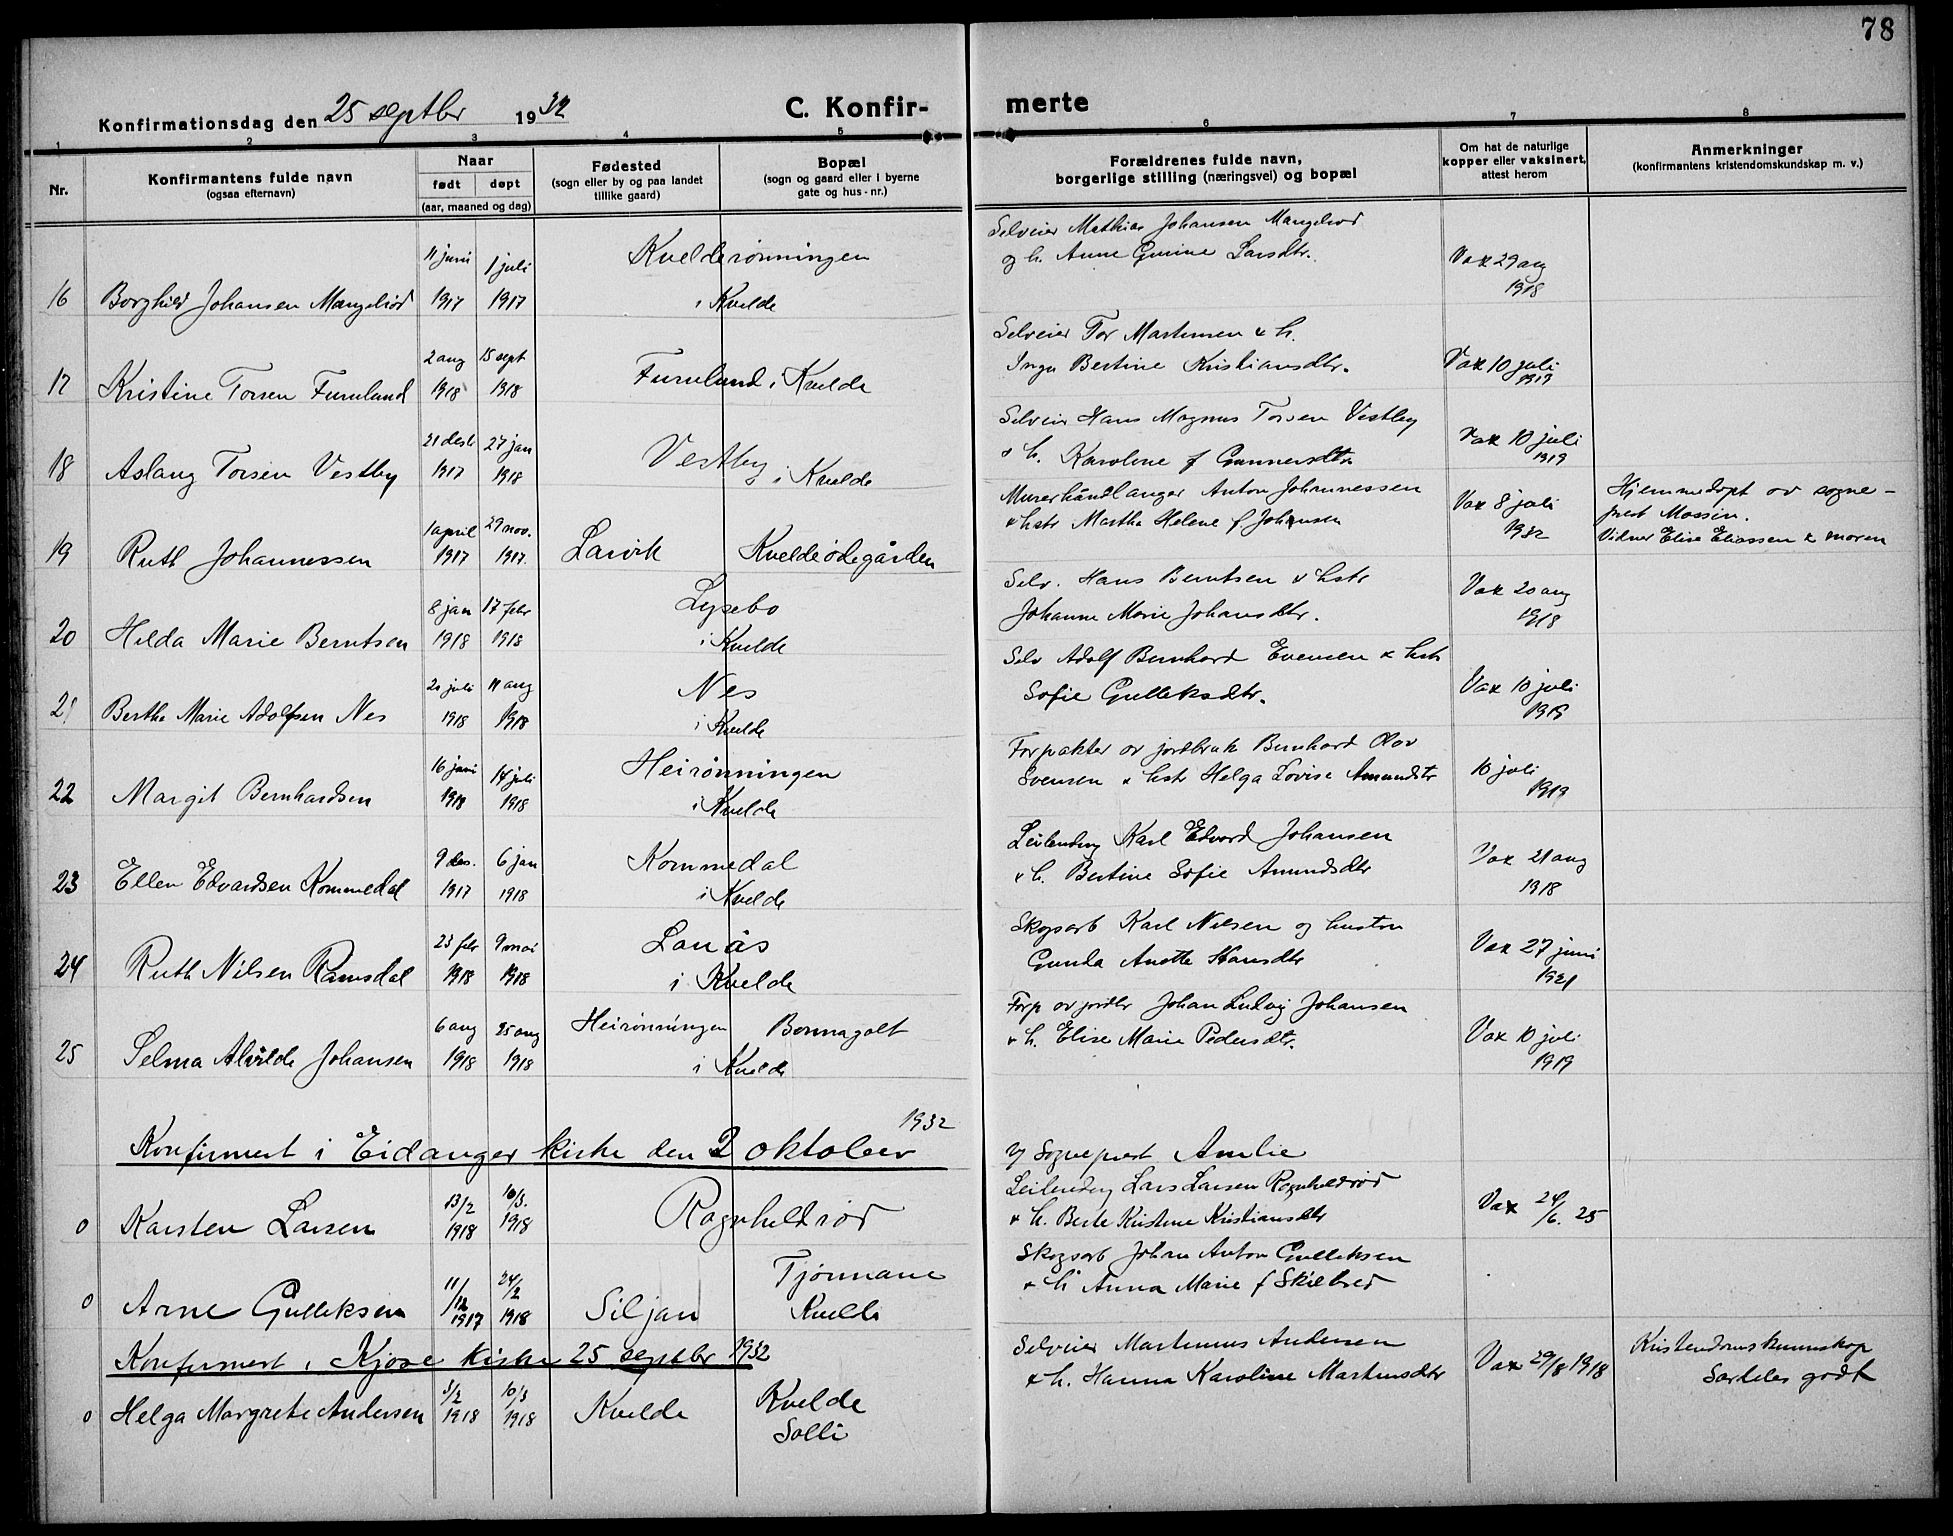 78
Konfirmationsdag den 25 septbr 1932
C. Konfir-
merte
1 2 3 4 5 6 7 8
Nr.
Konfirmantens fulde navn
(ogsaa efternavn)
Naar
født døpt
(aar, maaned og dag)
Fødested
(sogn eller by og paa landet
tillike gaard)
Bopæl
(sogn og gaard eller i byerne
gate og hus-nr.)
Forældrenes fulde navn,
borgerlige stilling (næringsvei) og bopæl
Om hat de naturlige
kopper eller vaksinert,
attest herom
Anmerkninger
(konfirmantens kristendomskundskap m. v.)
11 juni 1 juli Kvelderønningen Selveier Mathias Johansen Mangelrød
og h. Anne Gurine Larsdtr. Vax 29 aug
16 Borghild Johansen Mangelrød 1917 1917 i Kvelde 1918
2 aug 15 sept Selveier Tor Martinsen & h.
17 Kristine Torsen Furulund 1918 1918 Furulund i Kvelde Inga Bertine Kristiansdtr. Vax 10 juli
1919
21 desb 27 jan Vestby Selveier Hans Magnus Torsen Vestby
18 Aslaug Torsen Vestby 1917 1918 i Kvelde & h. Karoline f Gunnersdtr Vax 10 juli
1919
1 april 29 nov. Murerhåndlanger Anton Johannessen Vax 8 juli Hjemmedøpt av sogne-
& hstr Martha Helene f. Johansen 1932 prest Mossin.
19 Ruth Johannessen 1917 1917. Larvik Kveldeødegården Vidner Elise Eliassen & moren
8 jan 17 febr Lysebo Selv. Hans Berntsen & hstr Vax 20 aug
20 Hilda Marie Berntsen 1918 1918 i Kvelde Johanne Marie Johansdtr. 1918
21 juli 11 aug Nes Selv Adolf Bernhard Evensen & hstr Vax 10 juli
21 Berthe Marie Adolfsen Nes 1918 1918 i Kvelde Sofie Gulleksdtr. 1919
16 juni 14 juli Heirønningen Forpakter av jordbruk Bernhard Olav
Svensen & hstr Helga Lovise Amundsdtr 10 juli
22 Margit Bernhardsen 1918 1918 i Kvelde 1919
9 des. 6 jan Kommedal Leilending Karl Edvard Johansen Vax 21 aug
23 Ellen Edvardsen Kommedal 1917 1918 i Kvelde & h. Bertine Sofie Amundsdtr 1918
23 febr 9 mai Lanås Skogsarb Karl Nilsen og hustru Vax 27 juni
24 Ruth Nilsen Ramsdal 1918 1918 i Kvelde Gunda Anette Hansdtr 1921
6 aug 25 aug Heirønningen Bonnagolt Forp av jordbr Johan Ludvig Johansen Vax 10 juli
25 Selma Alvilde Johansen 1918 1918 i Kvelde & h. Elise Marie Pedersdtr. 1919
Konfirmert i Eidanger kirke den 2 oktober 1932 v/ Sogneprest Amlie
13/2 10/3. Leilending Lars Larsen Rognhelrød
0 Karsten Larsen 1918 1918 Ragnhildrød & h. Berte Kristine Kristiansdtr Vax 24/6. 25
11/12 24/2 Tjønnane Skogsarb Johan Anton Gulleksen
0 Arne Gulleksen 1917 1918 Siljan Kvelde & h Anna Marie f Skilbred
Konfirmert i Kjose kirke 25 septbr 1932
3/2 10/3 Kvelde Selveier Martinius Andersen Kristendomskunnskap
0 Helga Margrete Andersen 1918 1918 Kvelde Solli & h. Hanna Karoline Martinsdtr Vax 29/8 1918 Særdeles godt